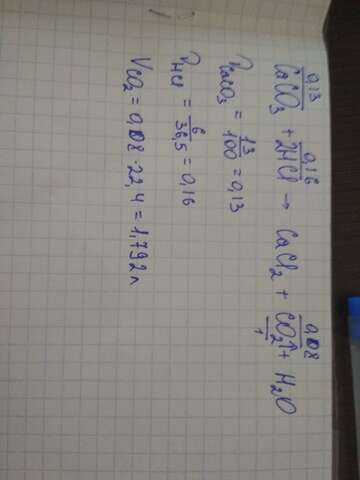 0,13 0,16 0,08
CaCO₃ + 2HCl → CaCl₂ + CO₂↑ + H₂O
1
n CaCO₃ = 13/100 = 0,13
n HCl = 6/36,5 = 0,16
V CO₂ = 0,08 · 22,4 = 1,792 л